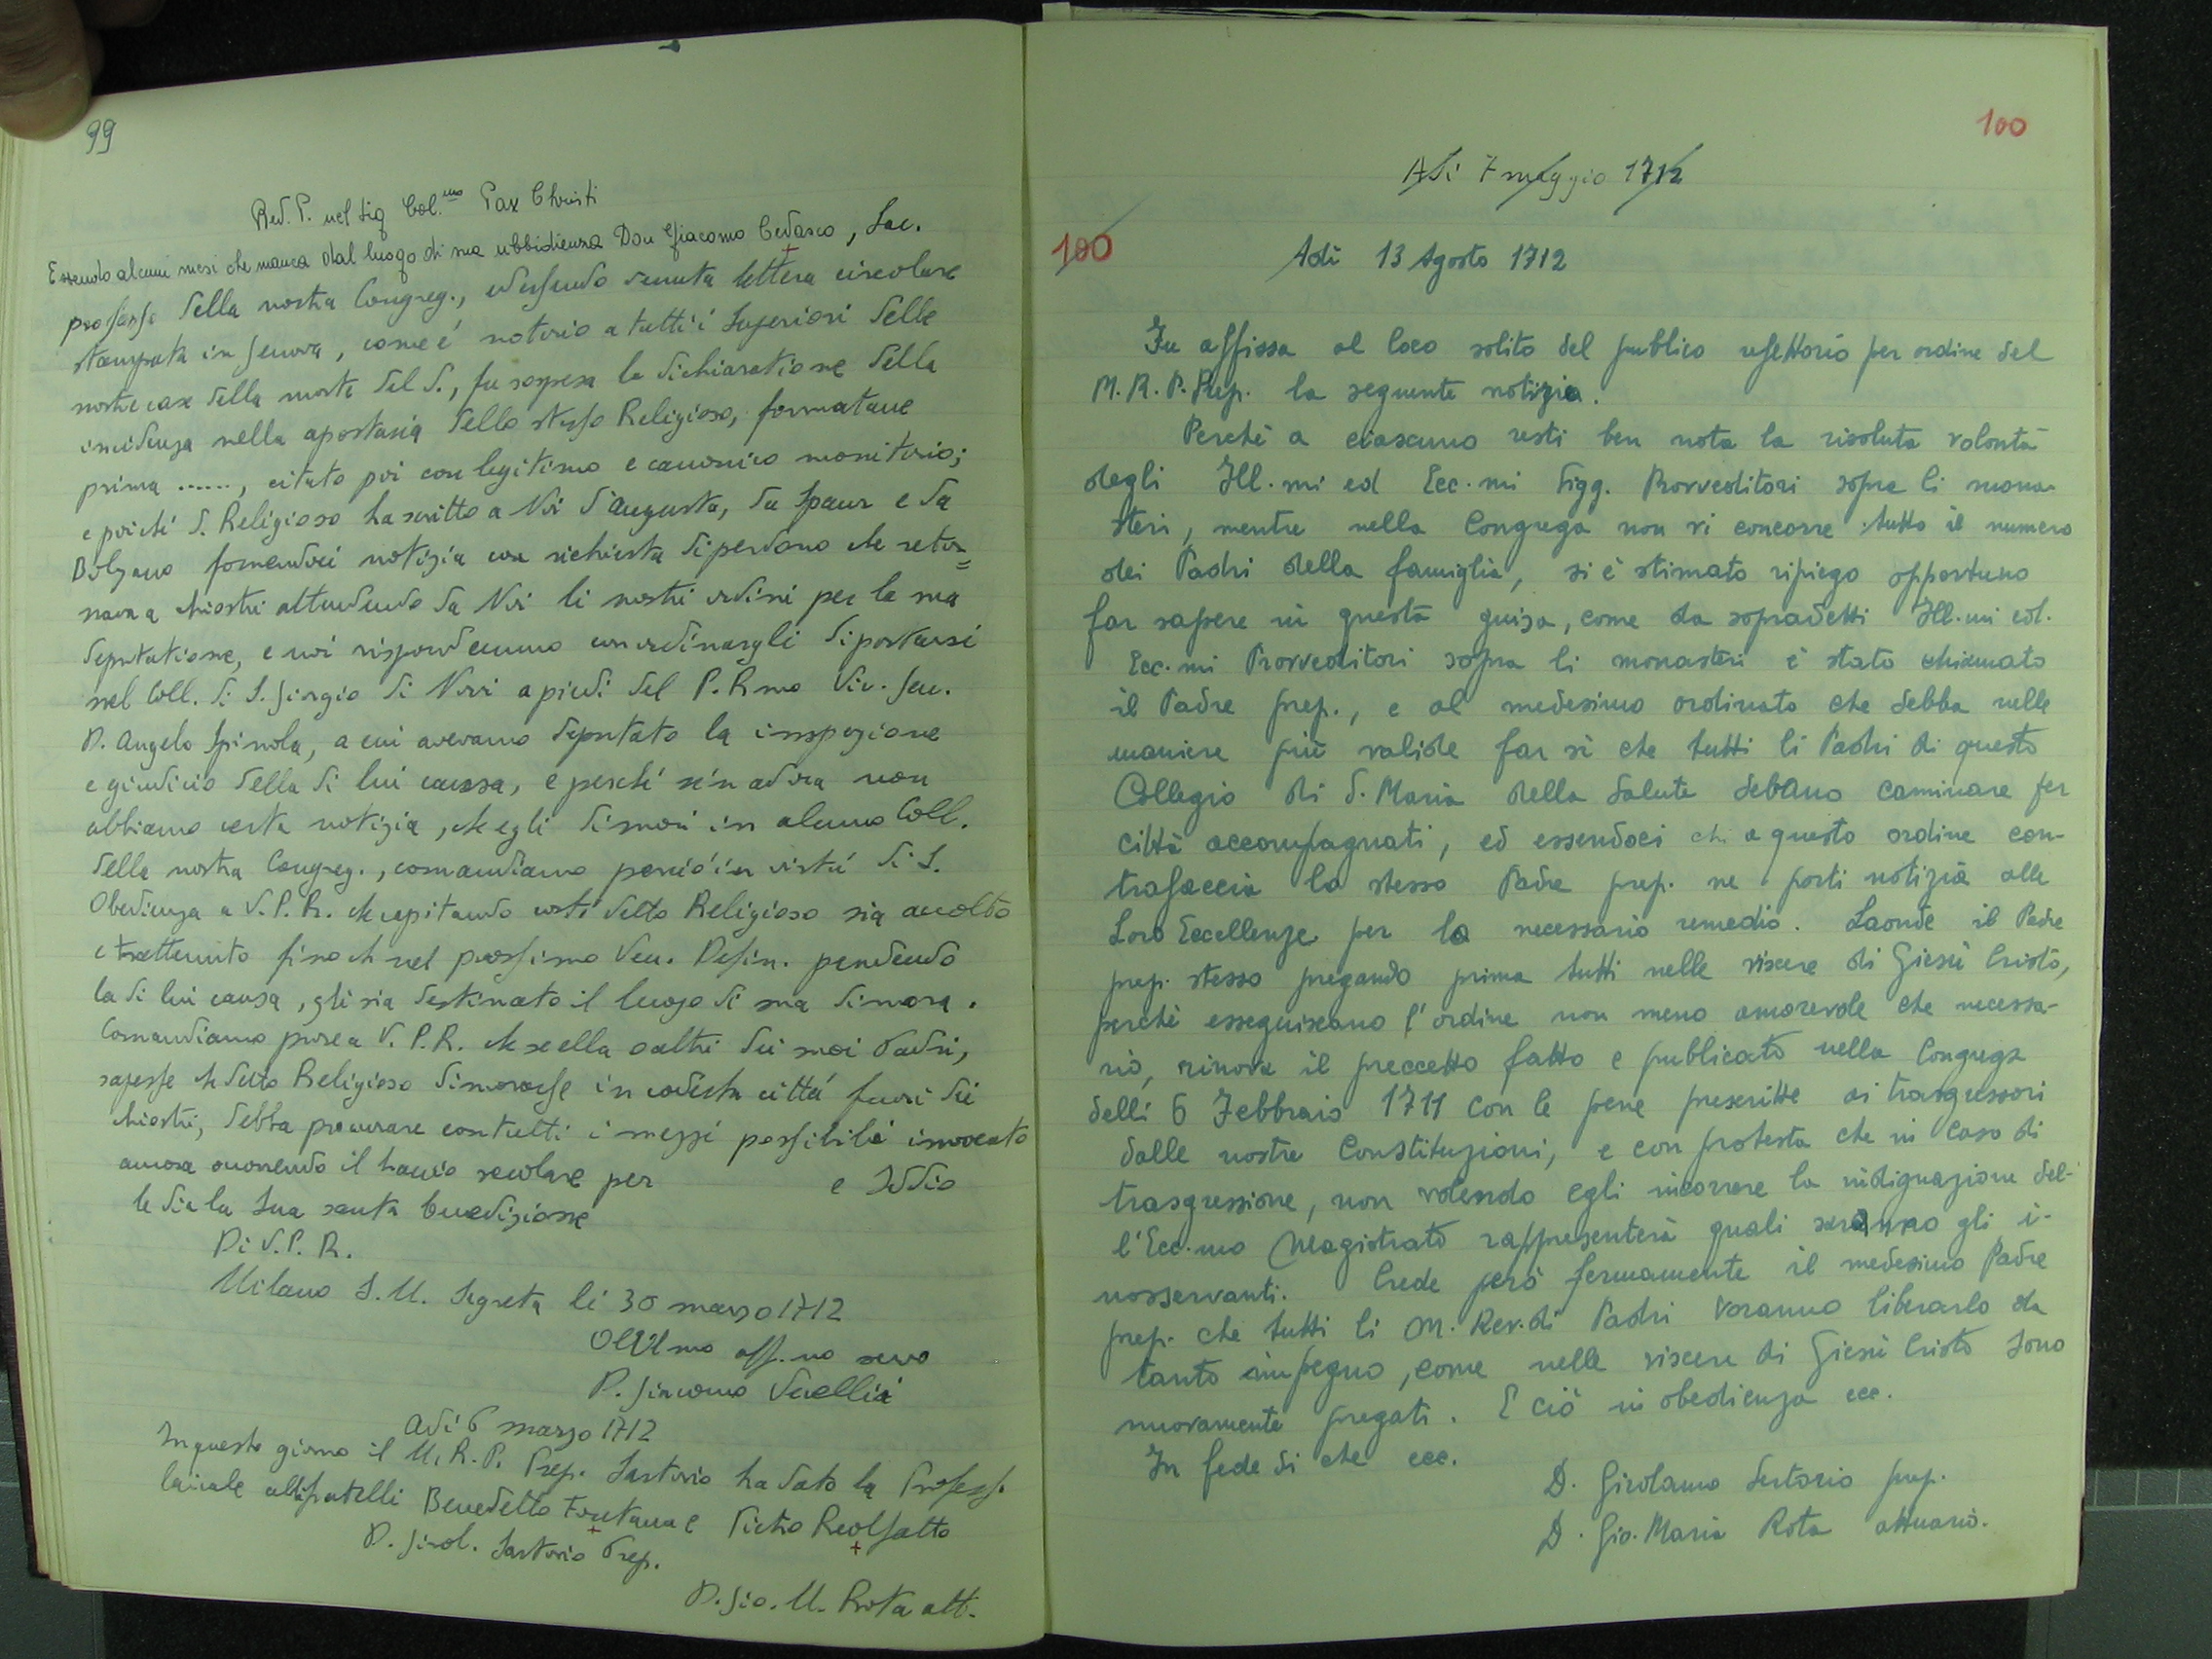 99
Rev. P. nel Sig Col.mo Pax Christi
Essendo alcuni mesi che manca dal luogo di sua ubbidienza Don Giacomo Cedasco, Sac.
professo della nostra Congreg., ed essendo venuta lettera circolare
stampata in Genova, come é notorio a tutti i Superiori delle
nostre case della morte del d., fu sospesa la dichiaratione della
incidenza nella apostasia dello stesso Religioso, formatane
prima ......, citato poi con legitimo e canonico monitorio;
e poiché d. Religioso ha scritto a Noi d'Augusta, da Spaur e da
Bolzano fornendoci notizia con richiesta di perdono che retor=
nava a chiostri attendendo da Noi li nostri ordini per la sua
deputatione, e noi rispondemmo con ordinargli di portarsi
nel Coll. di S. Giorgio di Novi a piedi del P. R.mo Vic. Gen.
D. Angelo Spinola, a cui avevamo deputato la inspezione
e giudicio della di lui causa, e perché sin adora non
abbiamo certa notizia, che egli dimori in alcuno Coll.
della nostra Congreg., comandiamo perció in virtú di S.
Obedienza a V. P. R. che capitando costí detto Religioso sia accolto
e trattenuto fino ch nel prossimo Ven. Defin. pendendo
la di lui causa, gli sia destinato il luogo di sua dimora.
Comandiamo pure a V. P. R. che se ella o altri dei suoi Padri,
sapesse ch detto Religioso dimorasse in codesta cittá fuori dei
chiostri, debba procurare con tutti i mezzi possibili invocato
ancora occorrendo il braccio secolare per e Iddio
le dia la Sua santa benedizione
Di V. P. R.
Milano S. M. Segreta li 30 marzo 1712
aff.mo servo
D. Giacomo Vecellii
Adi 6 marzo 1712
In questo giorno il M. R. P. Prep. Sartorio ha dato la Profess.
laicale alli fratelli Benedetto Fontana e Pietro Reolfatto
D. Girol. Sartorio Prep.
D. Gio. M. Rota att.
100
Adi 7 maggio 1712
100
Adi 13 Agosto 1712
Fu affissa al loco solito del publico refettorio per ordine del
M. R. P. Prep. la seguente notizia.
Perchè a ciascuno resti ben nota la risoluta volontà
degli Ill.mi ed Ecc.mi Sigg. Provveditori sopra li mona-
steri, mentre nella Congrega non vi concorre tutto il numero
dei Padri della famiglia, si è stimato ripiego opportuno
far sapere in questa guisa, come da sopradetti Ill.mi ed.
Ecc.mi Provveditori sopra li monasteri è stato chiamato
il Padre prep., e al medesimo ordinato che debba nelle
maniere più valide far sì che tutti li Padri di questo
Collegio di S. Maria della Salute debano caminare per
città accompagnati, ed essendoci chi a questo ordine con-
trafaccia lo stesso Padre prep. ne porti notizia alle
Loro Eccellenze per lo necessario remedio. Laonde il Padre
prep. stesso pregando prima tutti nelle viscere di Giesù Cristo,
perchè esseguiscano l'ordine non meno amorevole che necessa-
rio, rinova il preccetto fatto e publicato nella Congrega
delli 6 Febbraio 1711 con le pene prescritte ai trasgressori
dalle nostre Constituzioni, e con protesta che in caso di
trasgressione, non volendo egli incorrere la indignazione del-
l'Ecc.mo Magistrato rappresenterà quali seranno gli i-
nosservanti. Crede però fermamente il medesimo Padre
prep. che tutti li M. Rev.di Padri voranno liberarlo da
tanto impegno, come nelle viscere di Giesù Cristo sono
nuovamente pregati. E ciò in obedienza ecc.
In fede di che ecc.
D. Girolamo Sertorio prep.
D. Gio. Maria Rota attuario.